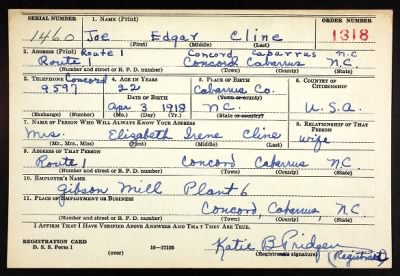 SERIAL NUMBER 1. Name (Print) ORDER NUMBER
1460 Joe Edgar Cline 1318
(First) (Middle) (Last)
2. Address (Print) Route 1 Concord Cabarrus N.C.
Route 1 Concord Cabarrus N.C.
(Number and street or R. F. D. number) (Town) (County) (State)
3. Telephone 4. Age in Years 5. Place of Birth 6. Country of Citizenship
Concord 22 Cabarrus Co.
9597 Date of Birth (Town or county)
Apr 3 1918 N.C. U.S.A.
(Exchange) (Number) (Mo.) (Day) (Yr.) (State or country)
7. Name of Person Who Will Always Know Your Address 8. Relationship of That Person
Mrs. Elizabeth Irene Cline wife
(Mr., Mrs., Miss) (First) (Middle) (Last)
9. Address of That Person
Route 1 Concord Cabarrus N.C
(Number and street or R. F. D. number) (Town) (County) (State)
10. Employer's Name
Gibson Mill Plant 6
11. Place of Employment or Business
Concord, Cabarrus N.C
(Number and street or R. F. D. number) (Town) (County) (State)
I Affirm That I Have Verified Above Answers and That They Are True.
REGISTRATION CARD
D. S. S. Form 1 (over) 16—17105 Katie B Pridgen (Registrar)
(Registrant's signature)